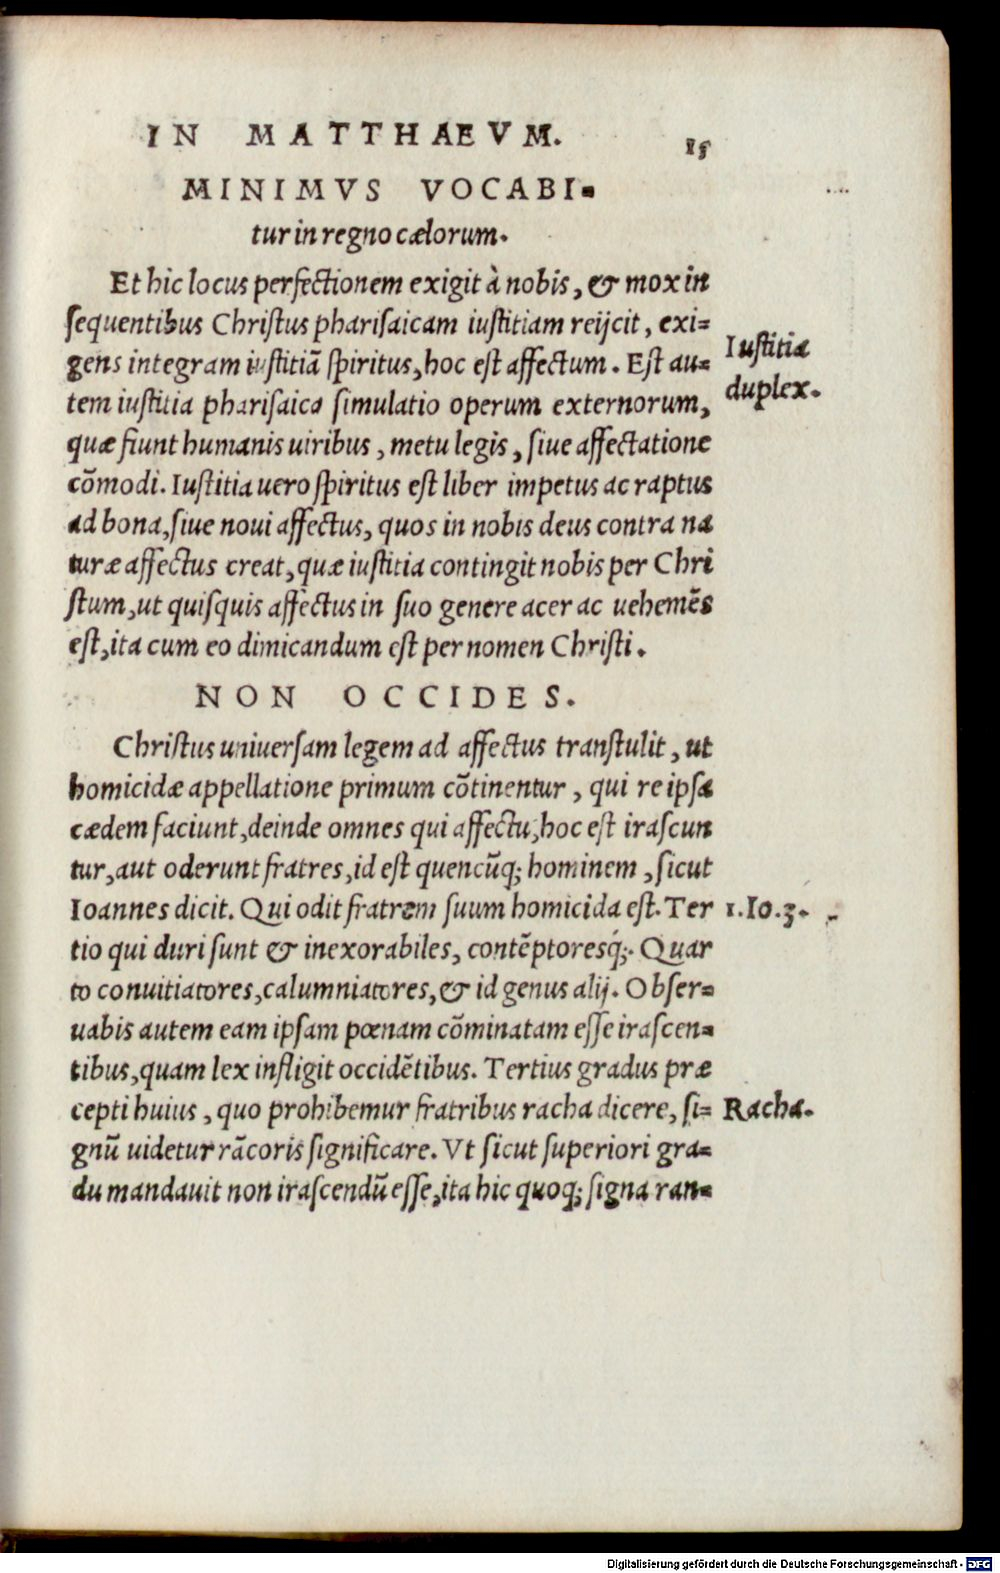 IN MATTHAEVM.
15
MINIMVS VOCABI=
tur in regno cælorum.
Et hic locus perfectionem exigit à nobis, & mox in
sequentibus Christus pharisaicam iustitiam reijcit, exi=
gens integram iustitiã spiritus, hoc est affectum. Est au=
tem iustitia pharisaica simulatio operum externorum,
quæ fiunt humanis uiribus, metu legis, siue affectatione
cõmodi. Iustitia uero spiritus est liber impetus ac raptus
ad bona, siue noui affectus, quos in nobis deus contra na
turæ affectus creat, quæ iustitia contingit nobis per Chri
stum, ut quisquis affectus in suo genere acer ac uehemẽs
est, ita cum eo dimicandum est per nomen Christi.
Iustitia
duplex.
NON OCCIDES.
Christus uniuersam legem ad affectus transtulit, ut
homicidæ appellatione primum cõtinentur, qui re ipsa
cædem faciunt, deinde omnes qui affectu, hoc est irascun
tur, aut oderunt fratres, id est quencũq; hominem, sicut
Ioannes dicit. Qui odit fratrem suum homicida est. Ter
tio qui duri sunt & inexorabiles, contẽptoresq́;. Quar
to conuitiatores, calumniatores, & id genus alij. Obser=
uabis autem eam ipsam pœnam cõminatam esse irascen=
tibus, quam lex infligit occidẽtibus. Tertius gradus præ
cepti huius, quo prohibemur fratribus racha dicere, si=
gnũ uidetur rãcoris significare. Vt sicut superiori gra=
du mandauit non irascendũ esse, ita hic quoq; signa ran=
1.Io.3.
Racha.
Digitalisierung gefördert durch die Deutsche Forschungsgemeinschaft - DFG